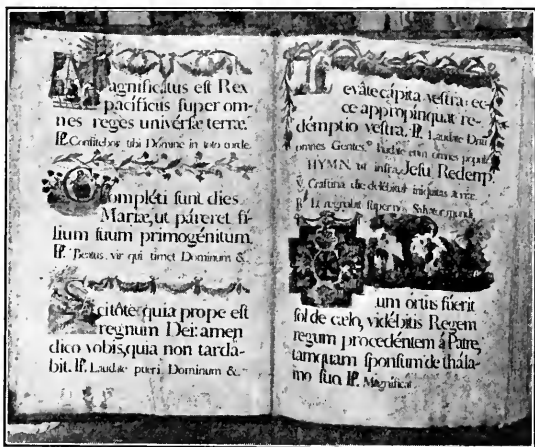 Magnificatus est Rex
pacificus super om-
nes reges univérsæ terræ.
Ps. Confitebor tibi Dómine in toto corde.
Compléti sunt dies
Mariæ, ut páreret fi-
lium suum primogénitum.
Ps. Beatus vir qui timet Dominum &.
Scitóte quia prope est
regnum Dei: amen
dico vobis, quia non tarda-
bit. Ps. Laudate pueri Dominum &.
Leváte cápita vestra: ec-
ce appropinquat re-
démptio vestra. Ps. Laudate Dnū
omnes Gentes laudate eum omnes populi
HYMN. ut infra, Jesu Redemp.
V. Crastina die delébitur iniquitas terræ.
R. Et regnabit super nos Salvator mundi.
Cum ortus fúerit
sol de cælo, vidébitis Regem
regum procedéntem à Patre,
tamquam sponsum de thála-
mo suo. Ps. Magnificat